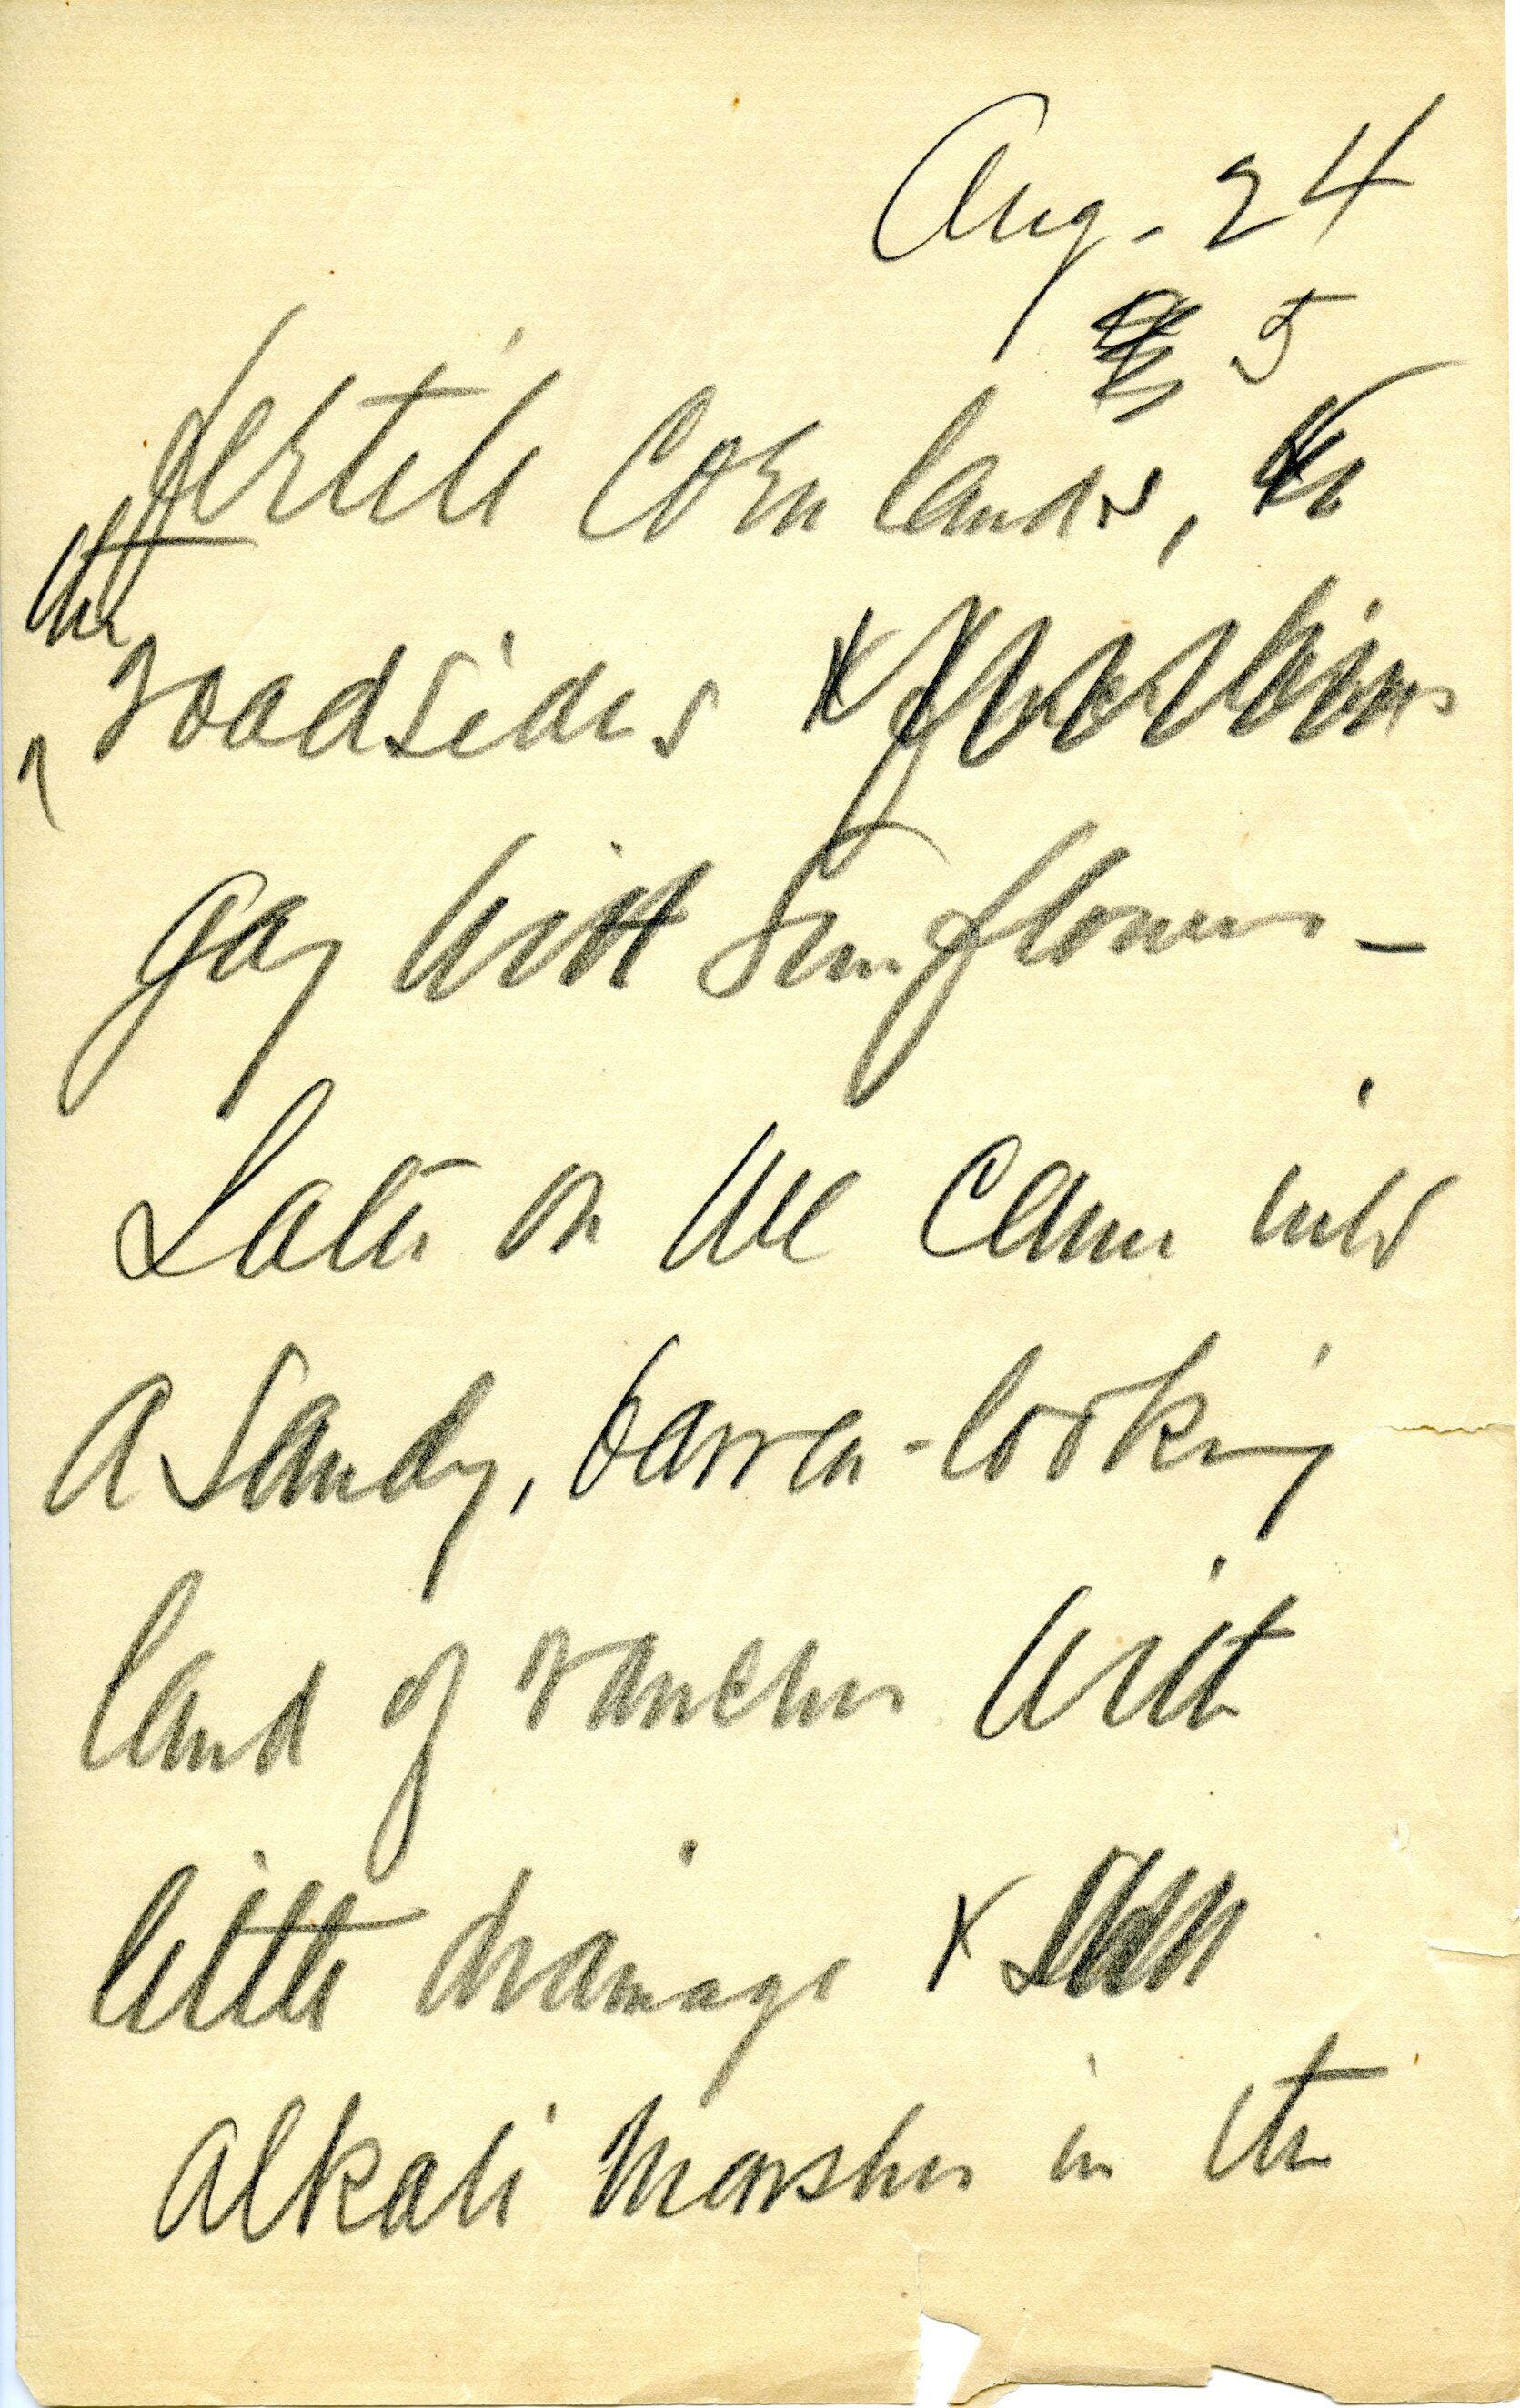 Aug. 24
5
fertile corn lands,
the
roadsides x
gay with sunflowers —
Later on we came into
a sandy, barren-looking
land of ranches with
little drainage x
alkali marshes in the